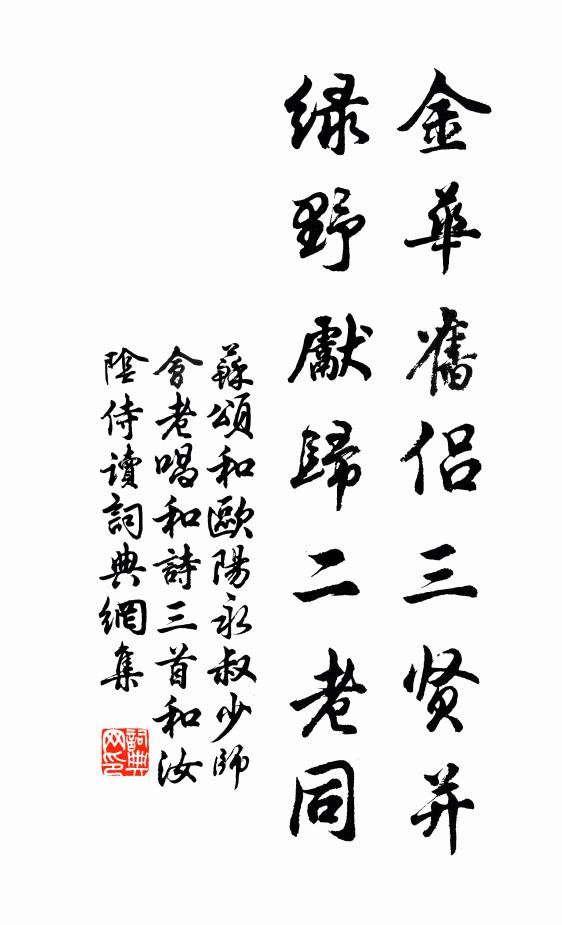 金華舊侣三贤并
绿野獻歸二老同
蘇頌和歐陽永叔少師
會老唱和詩三首和汝
陰侍讀詞典網集
詞典网印